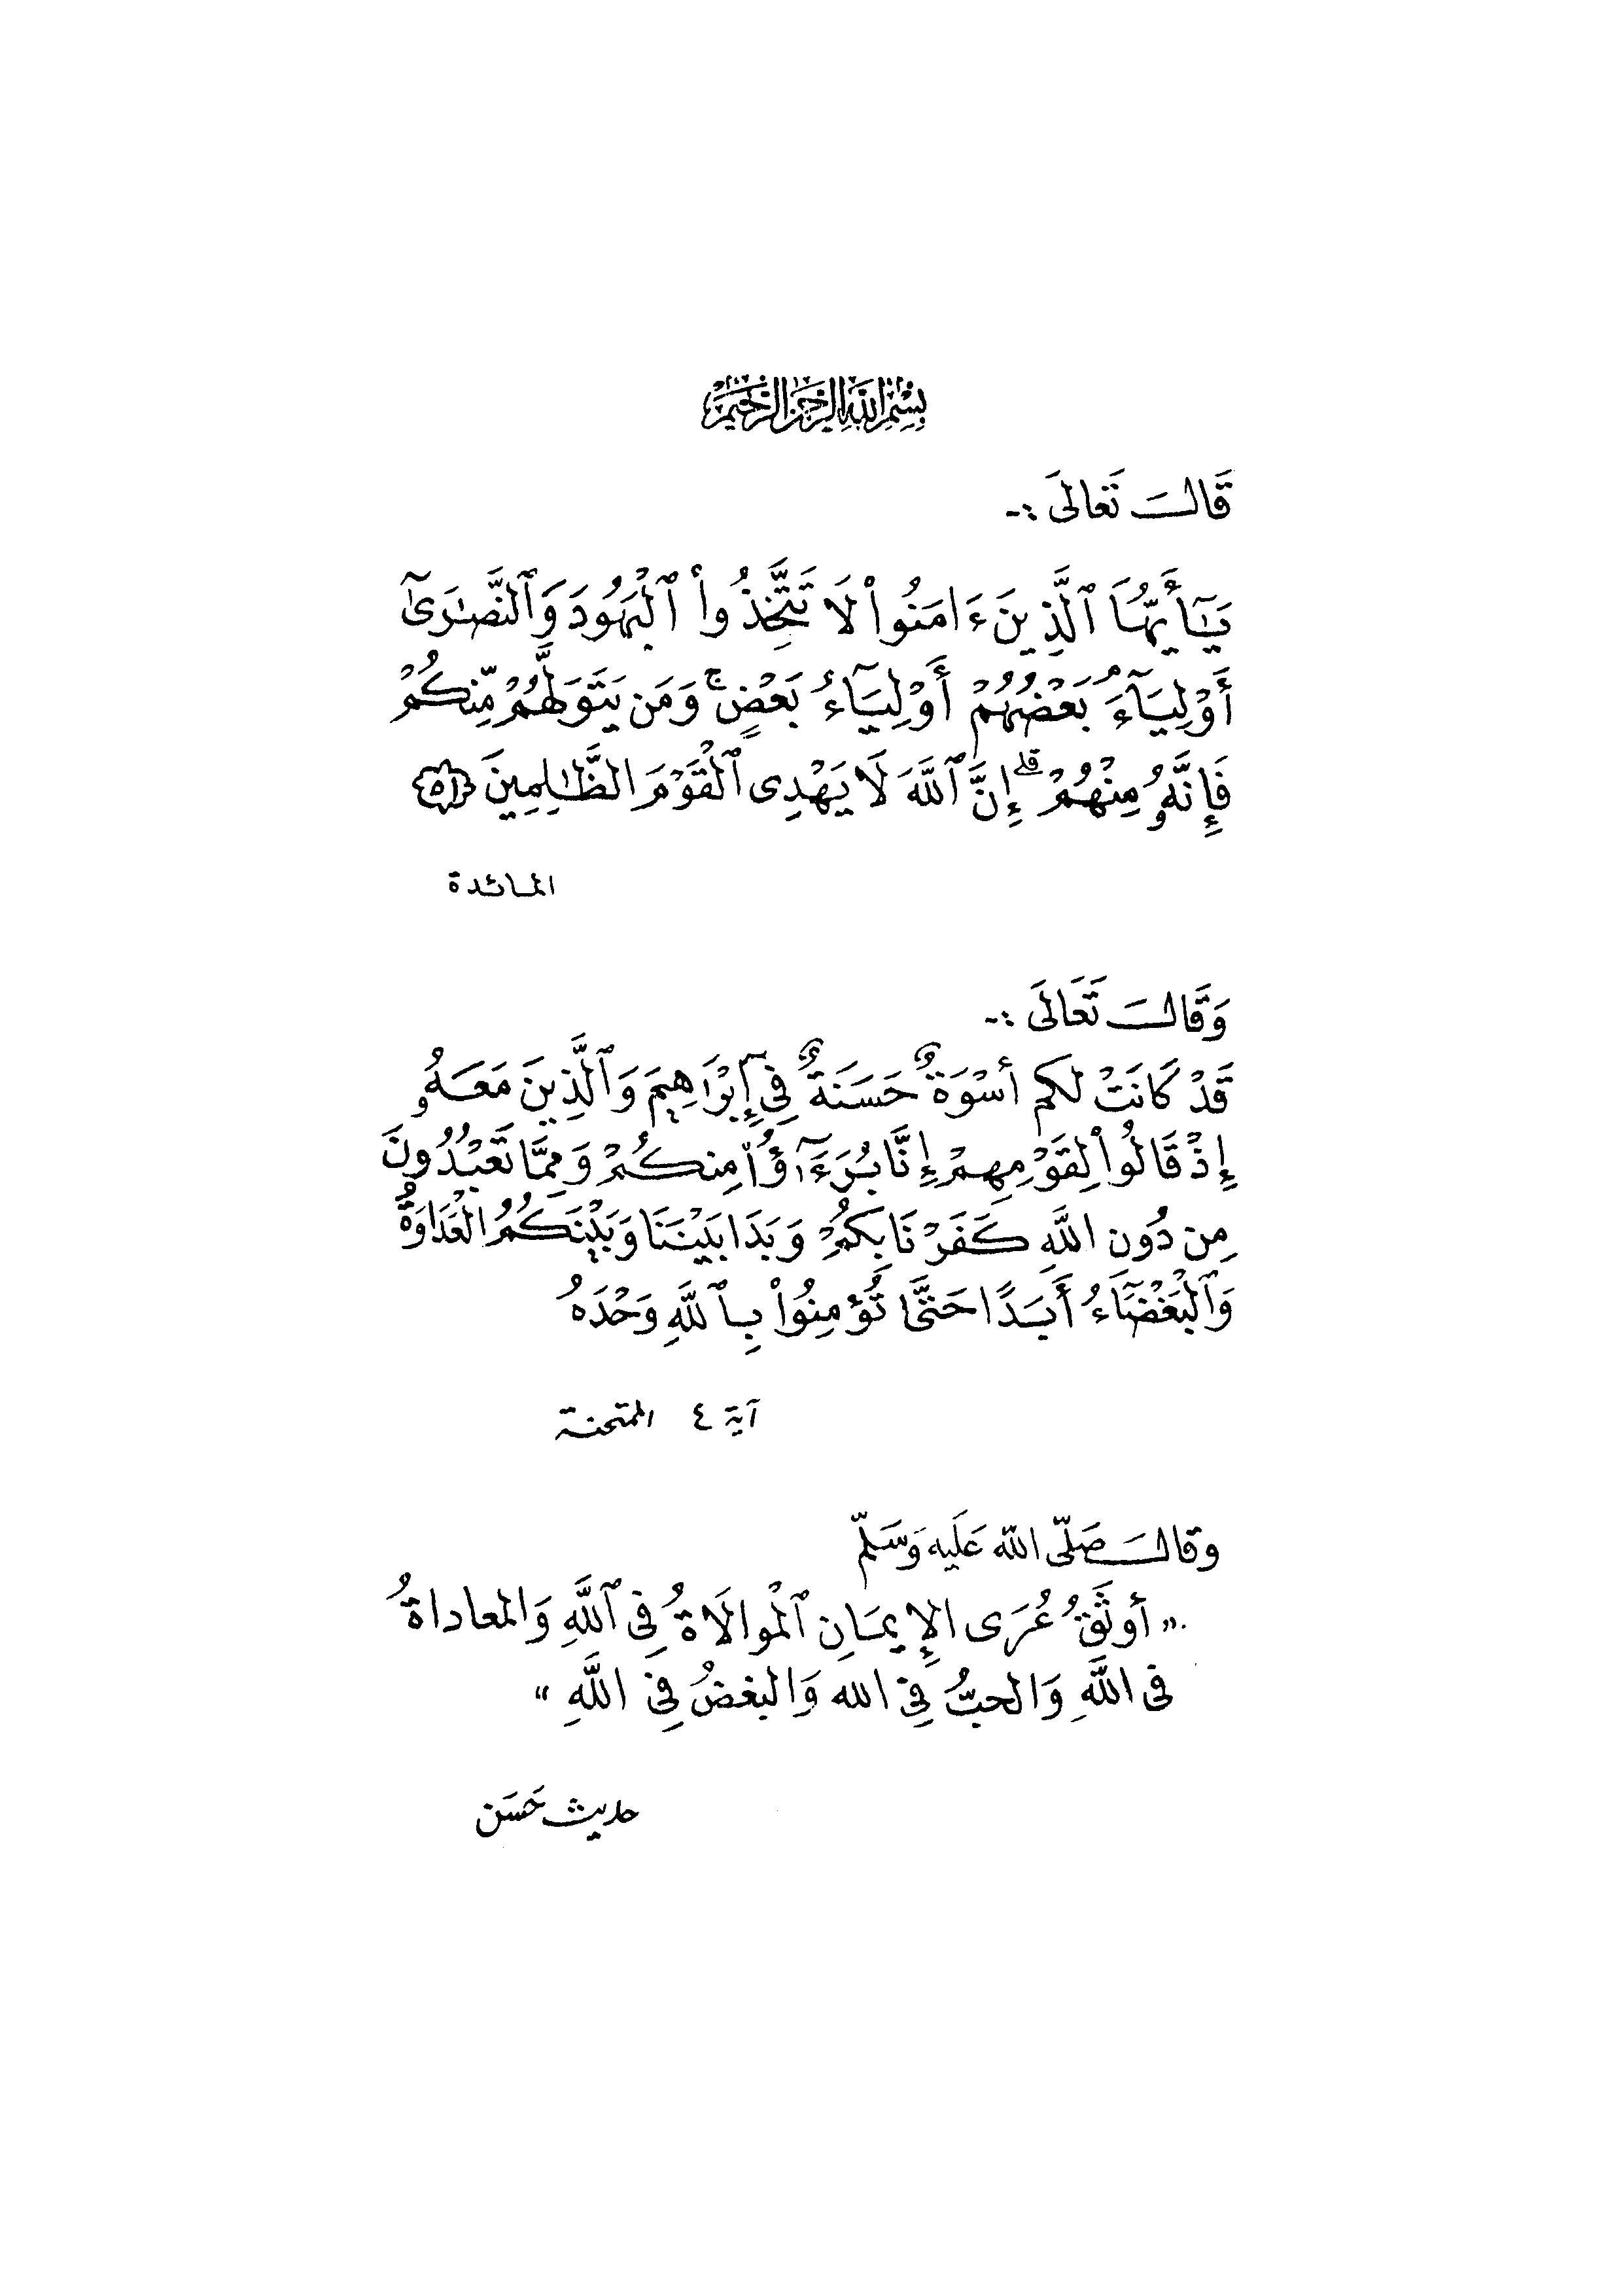 بِسْمِ اللَّهِ الرَّحْمَنِ الرَّحِيمِ
قَالَ تَعَالَى :-
يَٰٓأَيُّهَا ٱلَّذِينَ ءَامَنُوا۟ لَا تَتَّخِذُوا۟ ٱلْيَهُودَ وَٱلنَّصَٰرَىٰٓ
أَوْلِيَآءَ ۘ بَعْضُهُمْ أَوْلِيَآءُ بَعْضٍ ۚ وَمَن يَتَوَلَّهُم مِّنكُمْ
فَإِنَّهُۥ مِنْهُمْ ۗ إِنَّ ٱللَّهَ لَا يَهْدِى ٱلْقَوْمَ الظَّٰلِمِينَ ﴿٥١﴾
المائدة
وَقَالَ تَعَالَى :-
قَدْ كَانَتْ لكم أُسْوَةٌ حَسَنَةٌ فِي إِبْرَاهِيمَ وَٱلَّذِينَ مَعَهُۥ
إِذْ قَالُوا۟ لِقَوْمِهِمْ إِنَّا بُرَءَآؤُا۟ مِنكُمْ وَمِمَّا تَعْبُدُونَ
مِن دُونِ اللَّهِ كَفَرْنَا بِكُمْ وَبَدَا بَيْنَنَا وَبَيْنَكُمُ الْعَدَاوَةُ
وَٱلْبَغْضَآءُ أَبَدًا حَتَّىٰ تُؤْمِنُوا۟ بِٱللَّهِ وَحْدَهُ
آية ٤ الممتحنة
وقال صَلّى الله عَلَيه وَسَلّم
« أوثَقُ عُرَى الإِيمَانِ ٱلْموالَاةُ فِى ٱللَّهِ وَالمعاداةُ
فى اللَّهِ وَالحبُّ فِى الله وَالبغضُ فِى اللَّهِ »
حديث حَسَن